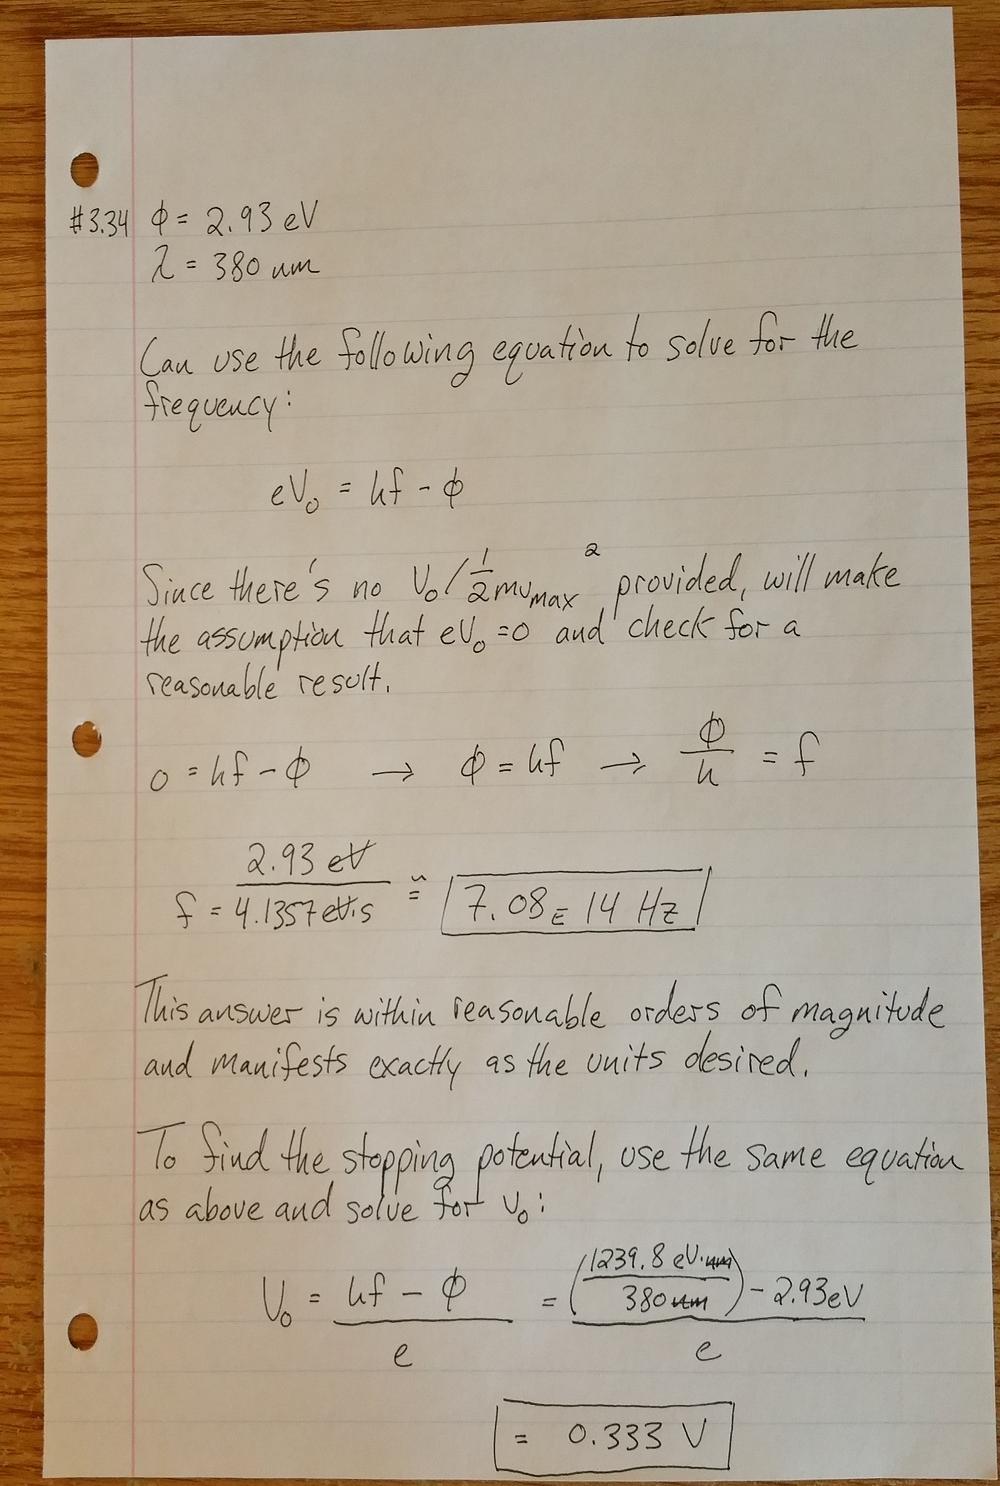 #3.34 ϕ = 2.93 eV
λ = 380 nm
Can use the following equation to solve for the
frequency:
eV₀ = hf - ϕ
Since there's no V₀/½mv_max² provided, will make
the assumption that eV₀ = 0 and check for a
reasonable result.
0 = hf - ϕ → ϕ = hf → ϕ/h = f
f = 2.93 eV / 4.1357 eV·s ≅ 7.08E14 Hz
This answer is within reasonable orders of magnitude
and manifests exactly as the units desired.
To find the stopping potential, use the same equation
as above and solve for V₀:
V₀ = (hf - ϕ)/e = ((1239.8 eV·nm / 380 nm) - 2.93 eV)/e
= 0.333 V